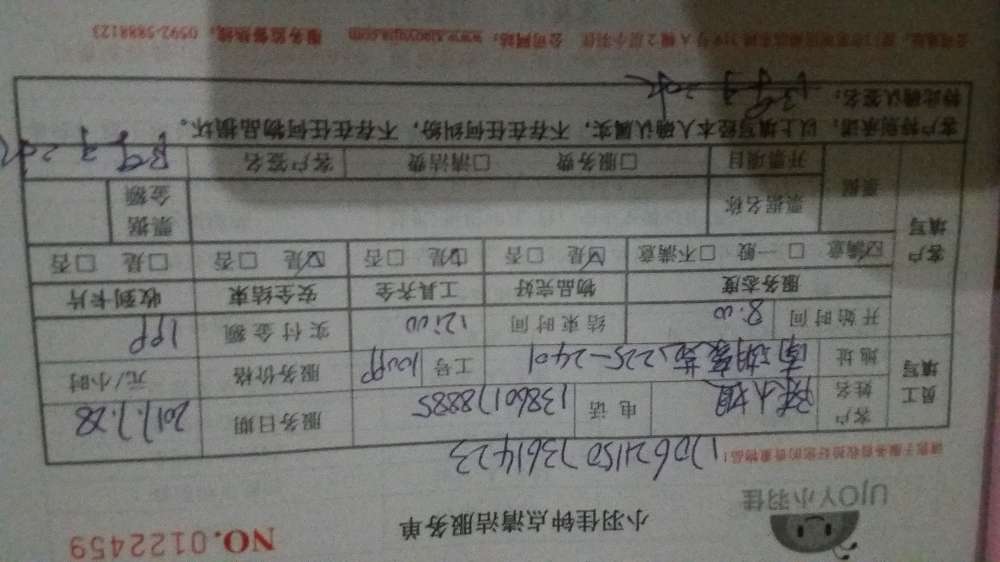 UJOY小羽佳
小羽佳钟点清洁服务单
NO.0122459
请您于服务前收拾好您的贵重物品!
1706241507361423
员工填写
客户姓名 陈小姐 电话 13860178885 服务日期 2017.7.28
地址 南湖豪苑225-2401 工号 服务价格 元/小时
开始时间 8:00 结束时间 12:00 实付金额
客户填写
服务态度 物品完好 工具齐全 安全结束 收到卡片
☑满意 □一般 □不满意 ☑是 □否 ☑是 □否 ☑是 □否 □是 □否
票据 票据名称 票据金额
开票项目 □服务费 □清洁费 客户签名
客户特别承诺:以上填写经本人确认属实,不存在任何纠纷,不存在任何物品损坏。
特此确认签名:
公司网站:www.xiaoyujia.com 服务监督热线:0592-5888123